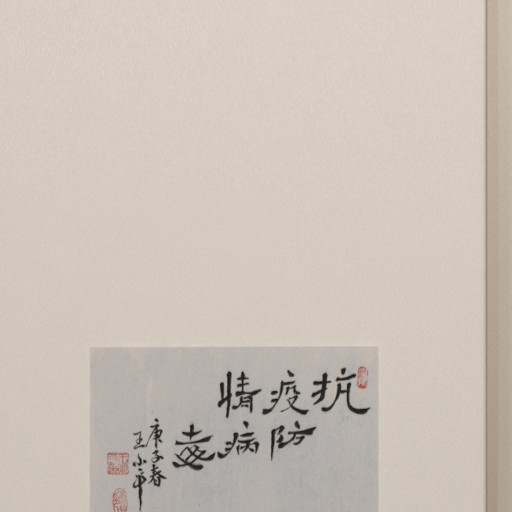 抗疫情
防病毒
庚子春
王小平